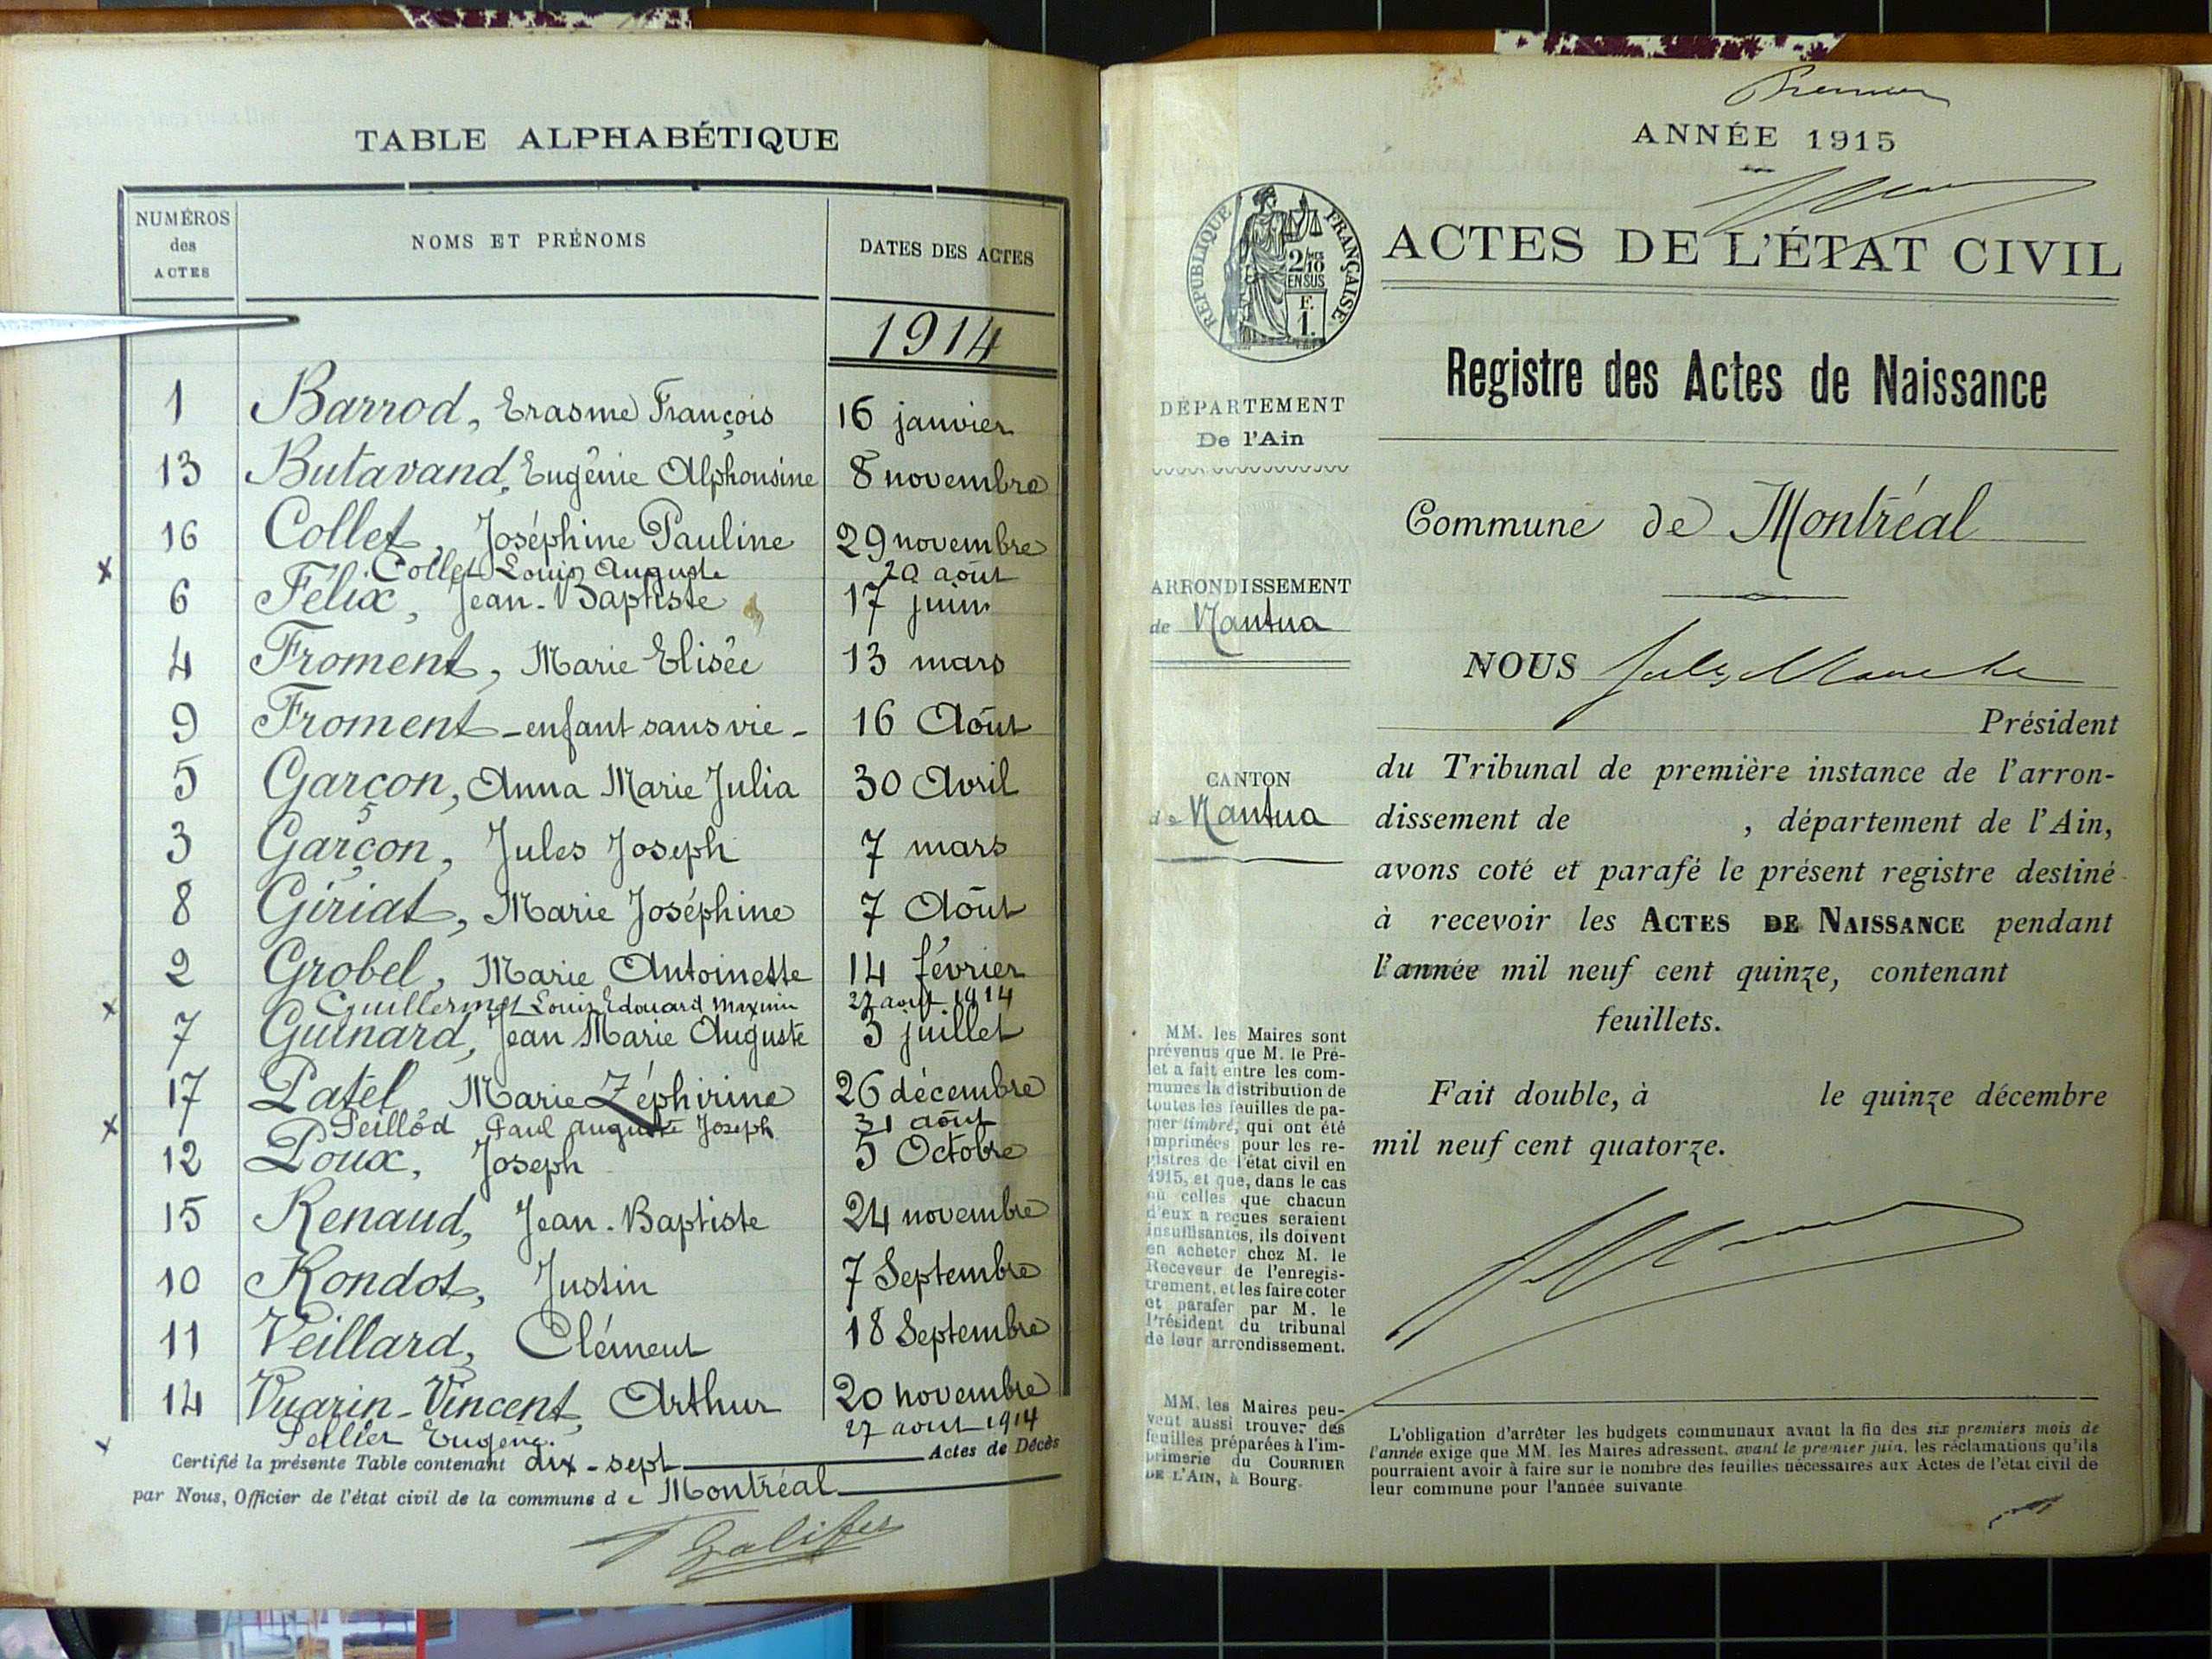 TABLE ALPHABÉTIQUE
NUMÉROS des ACTES
NOMS ET PRÉNOMS
DATES DES ACTES
1914
1 Barrod, Erasme François 16 janvier
13 Butavand, Eugénie Alphonsine 8 novembre
16 Collet, Joséphine Pauline 29 novembre
x Collet Louis Auguste 20 août
6 Félix, Jean-Baptiste 17 juin
4 Froment, Marie Elisée 13 mars
9 Froment - enfant sans vie - 16 Août
5 Garçon, Anna Marie Julia 30 Avril
3 Garçon, Jules Joseph 7 mars
8 Giriat, Marie Joséphine 7 Août
2 Grobel, Marie Antoinette 14 février
x Guillermet Louis Edouard Maximin 27 août 1914
7 Guinard, Jean Marie Auguste 3 juillet
17 Patel, Marie Zéphirine 26 décembre
x Peillod Paul Auguste Joseph 31 août
12 Poux, Joseph 5 Octobre
15 Renaud, Jean-Baptiste 24 novembre
10 Rondot, Justin 7 Septembre
11 Veillard, Clément 18 Septembre
14 Vuarin-Vincent, Arthur 20 novembre
x Pellier Eugene. 27 aout 1914
Certifié la présente Table contenant dix-sept Actes de Décès
par Nous, Officier de l'état civil de la commune de Montréal
Premier
ANNÉE 1915
RÉPUBLIQUE FRANÇAISE
2/10 EN SUS
F. 1.
ACTES DE L'ÉTAT CIVIL
Registre des Actes de Naissance
DÉPARTEMENT
De l'Ain
Commune de Montréal
ARRONDISSEMENT
de Nantua
NOUS Jules
Président
CANTON
de Nantua
du Tribunal de première instance de l'arron-
dissement de , département de l'Ain,
avons coté et parafé le présent registre destiné
à recevoir les ACTES DE NAISSANCE pendant
l'année mil neuf cent quinze, contenant
feuillets.
Fait double, à le quinze décembre
mil neuf cent quatorze.
MM. les Maires sont
prévenus que M. le Pré-
fet a fait entre les com-
munes la distribution de
toutes les feuilles de pa-
pier timbré, qui ont été
imprimées pour les re-
gistres de l'état civil en
1915, et que, dans le cas
où celles que chacun
d'eux a reçues seraient
insuffisantes, ils doivent
en acheter chez M. le
Receveur de l'enregis-
trement, et les faire coter
et parafer par M. le
Président du tribunal
de leur arrondissement.
MM. les Maires peu-
vent aussi trouver des
feuilles préparées à l'im-
primerie du COURRIER
DE L'AIN, à Bourg.
L'obligation d'arrêter les budgets communaux avant la fin des six premiers mois de
l'année exige que MM. les Maires adressent, avant le premier juin, les réclamations qu'ils
pourraient avoir à faire sur le nombre des feuilles nécessaires aux Actes de l'état civil de
leur commune pour l'année suivante